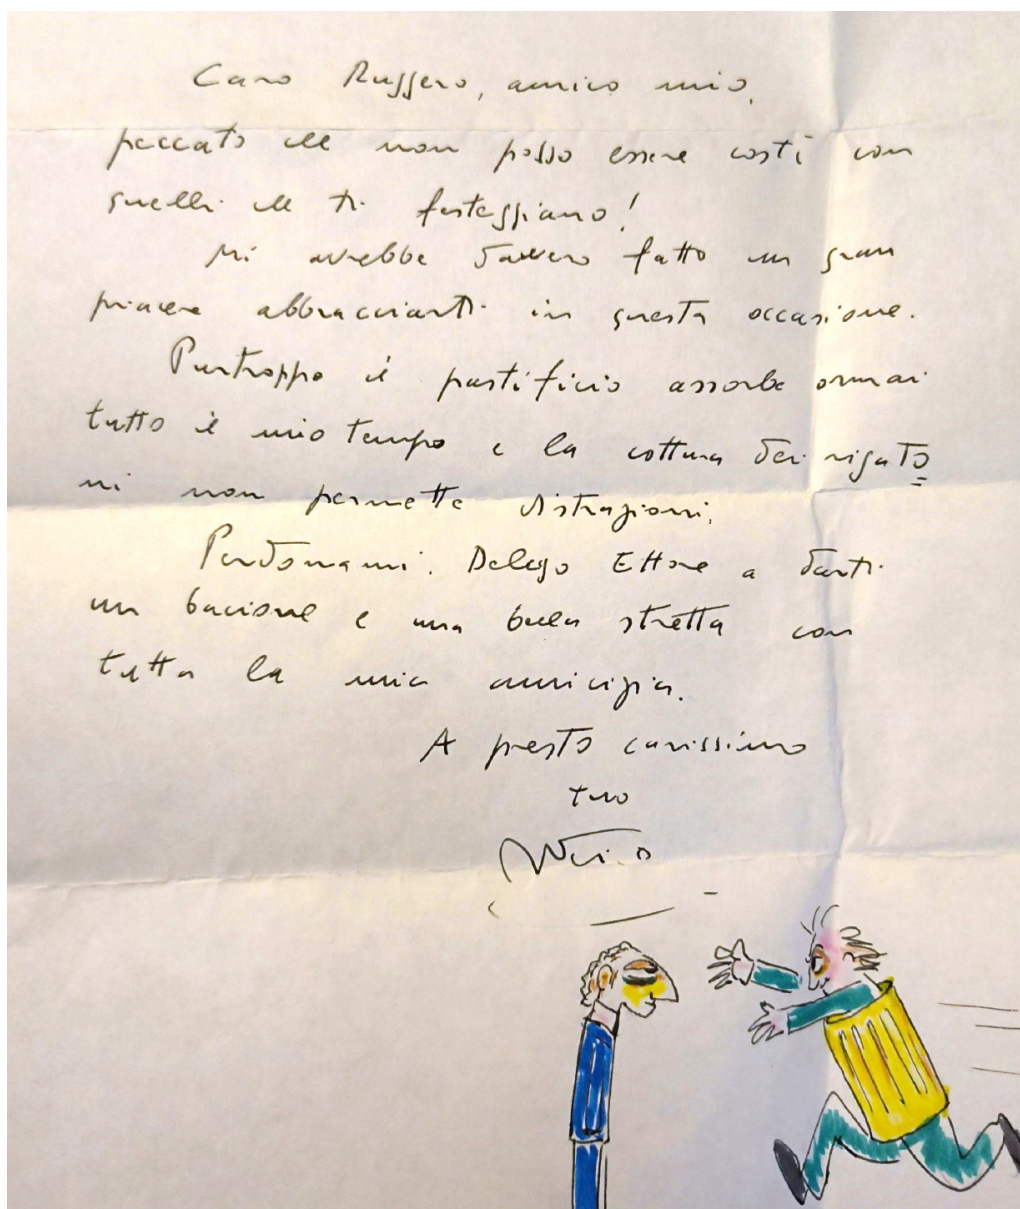 Caro Ruggero, amico mio,
peccato che non posso essere costì con
quelli che ti festeggiano!
Mi avrebbe davvero fatto un gran
piacere abbracciarti in questa occasione.
Purtroppo il pastificio assorbe ormai
tutto il mio tempo e la cottura dei rigato
ni non permette distrazioni.
Perdonami. Delego Ettore a darti
un bacione e una bella stretta con
tutta la mia amicizia.
A presto carissimo
tuo